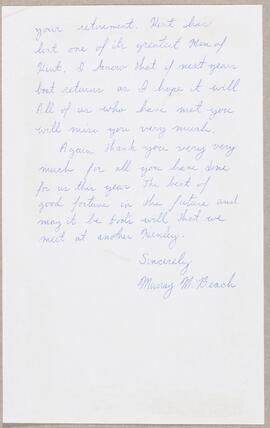 your retirement. Kent has
lost one of its greatest Men of
Kent. I know that if next years
boat returns as I hope it will
All of us who have met you
will miss you very much.
Again thank you very very
much for all you have done
for us this year. The best of
good fortune in the future and
may it be God's will that we
meet at another Henley.
Sincerely
Murray M. Beach